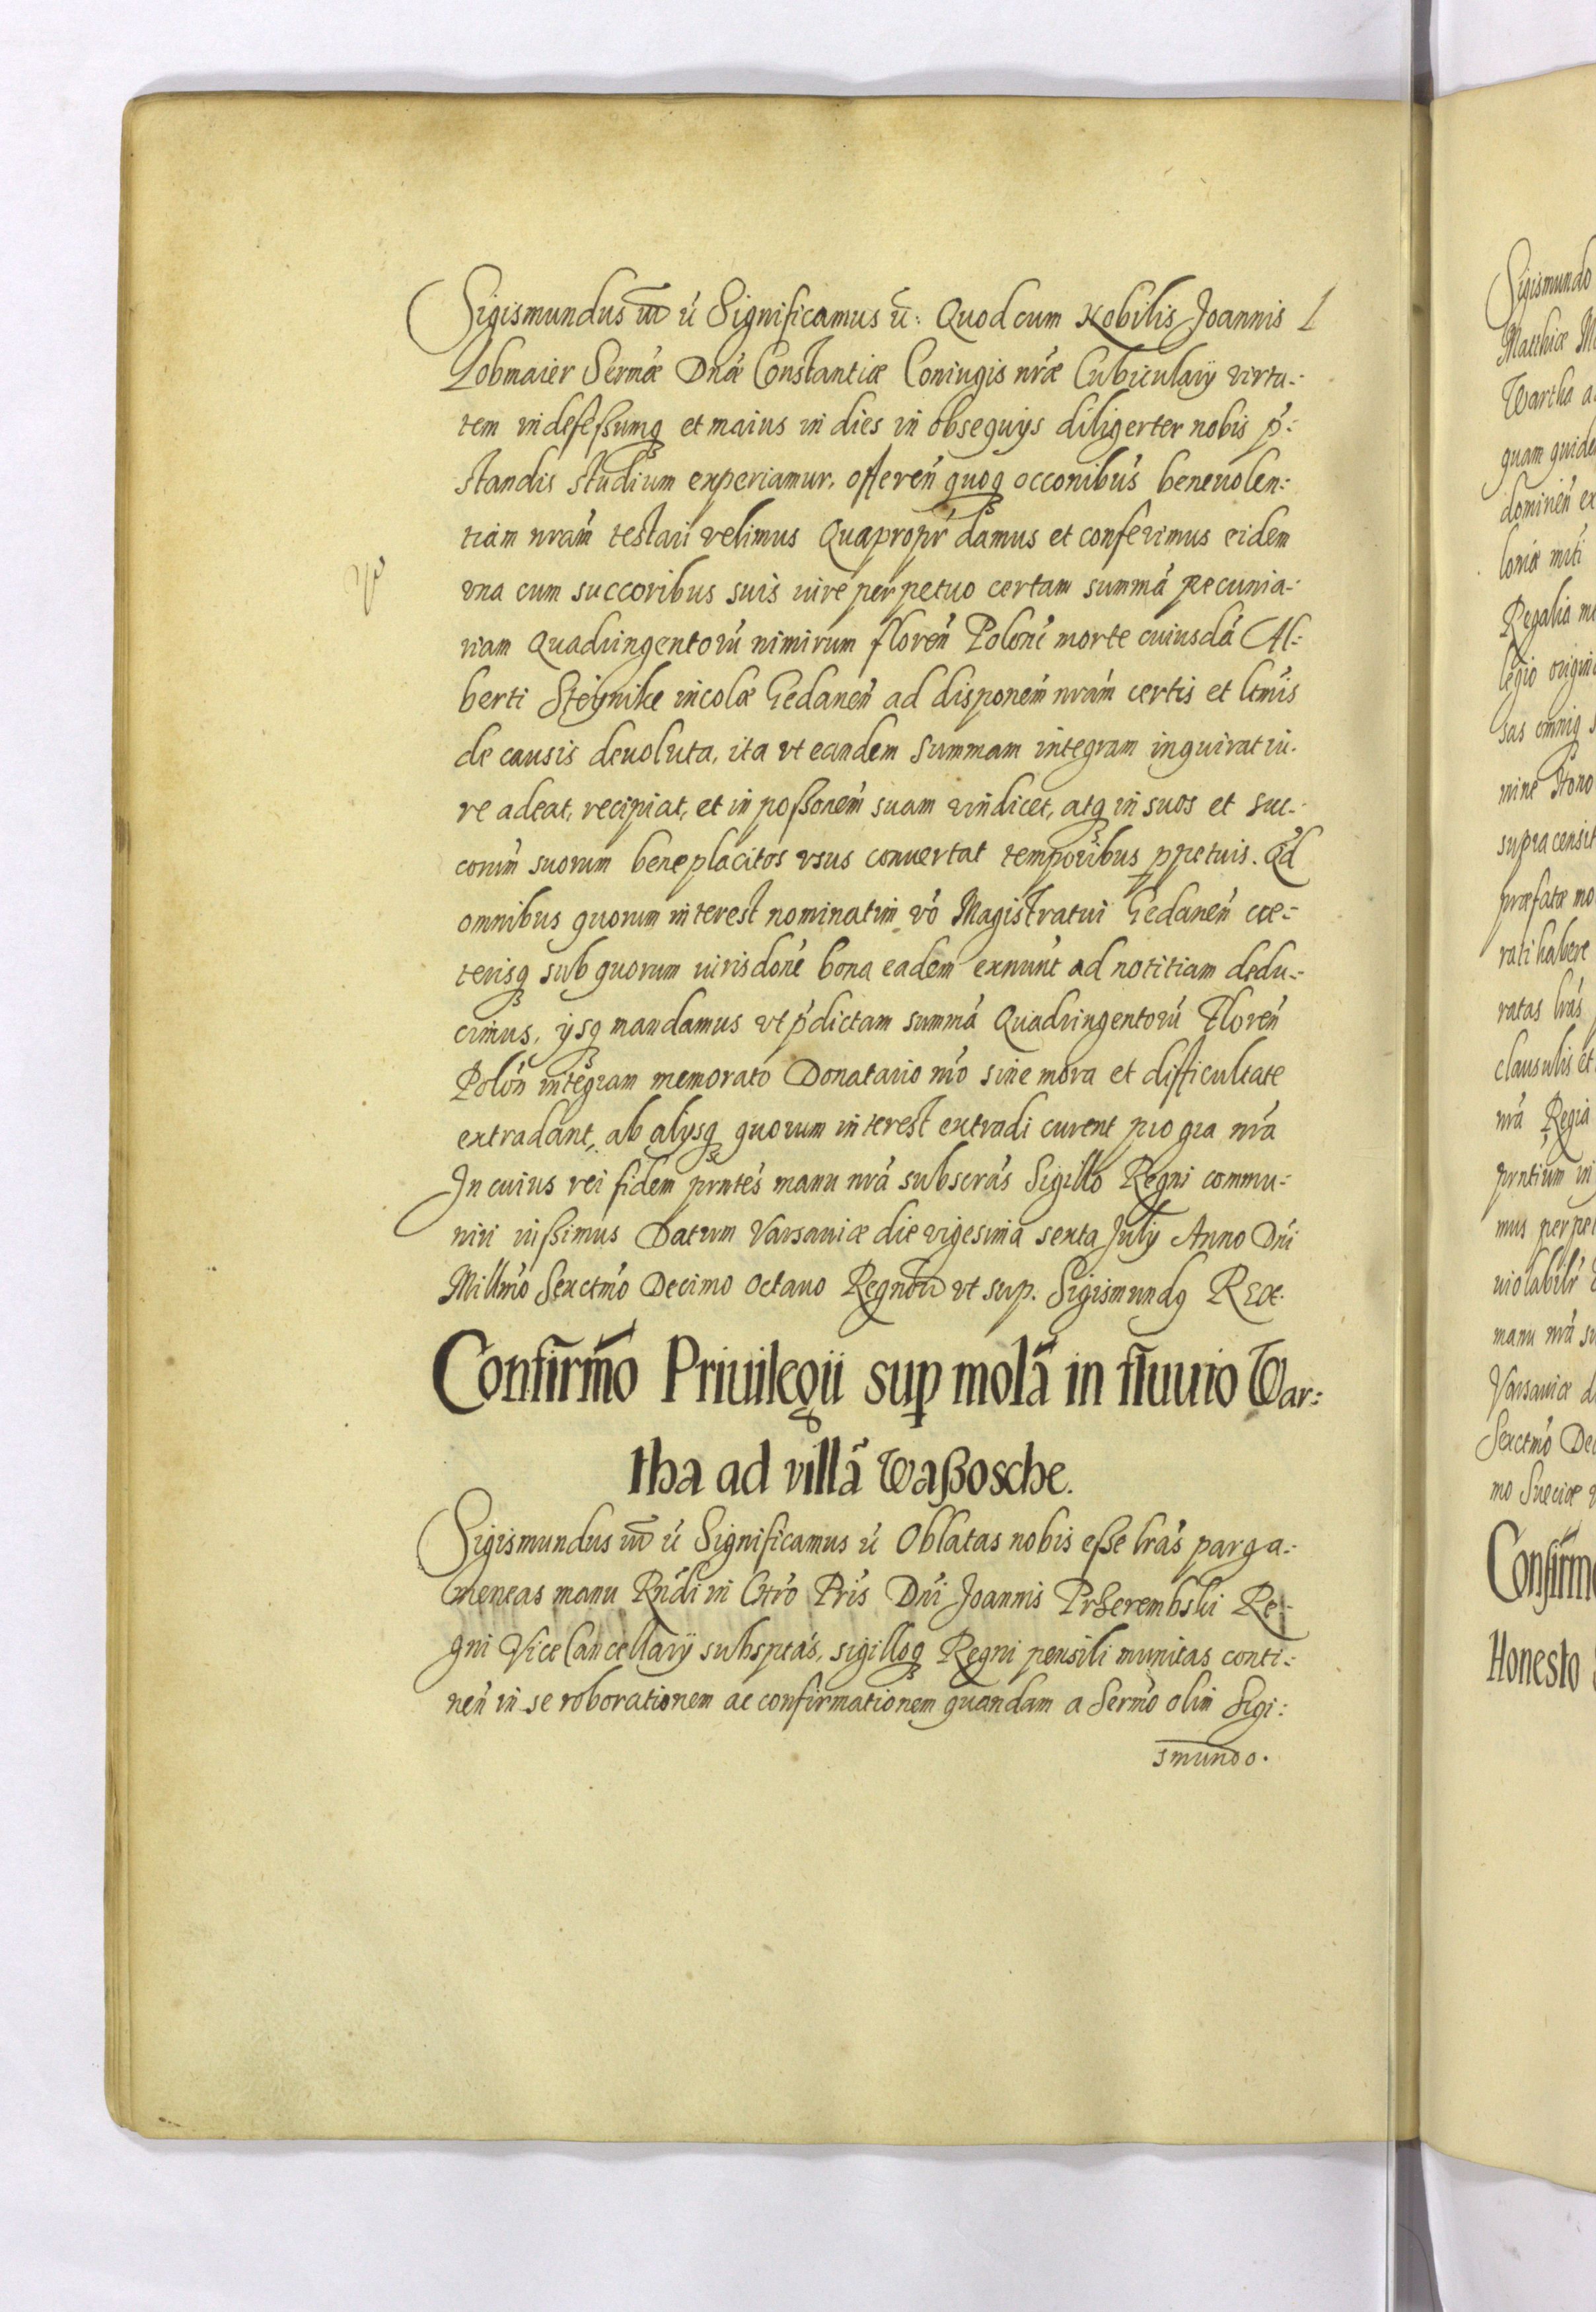 Sigismundus III ū Significamus ū: Quod cum Nobilis Joannis L
Lobmaier Sermæ Dnæ Constantiæ Coniugis nræ Cubicularij virtu-
tem indefeßumq et maius in dies in obsequijs diligerter nobis p-
standis studium experiamur, offeren quoq occonibus beneuolen:
tiam nram testari velimus Quapropr damus et conferimus eidem
vna cum succoribus suis iure perpetuo certam summā pecunia-
riam Quadringentorū nimirum floren Poloni morte cuiusdā Al:
berti Steynike incolæ Gedanen ad disponem nram certis et ltmis
de causis deuoluta, ita vt eandem summam integram inquirat iu-
re adeat, recipiat, et in poßonem suam vindicet, atq in suos et suc-
corum suorum beneplacitos vsus conuertat temporibus ppetuis. Qd
omnibus quorum interest nominatim vō Magistratui Gedanen cæ-
terisq sub quorum iurisdone bona eadem exnunt ad notitiam dedu-
cimus, ijsq mandamus vt pdictam summā Quadringentorū Floren
Polon integram memorato Donatario nro sine mora et difficultate
extradant, ab alijsq quorum interest extradi curent pro gra nra
In cuius rei fidem prntes manu nra subscras Sigillo Regni commu-
niri iußimus Datum Varsauiæ die vigesima sexta July Anno Dni
Millmo Sexctmo Decimo octauo Regnorū vt sup. Sigismundq Rex.
Confirmo Priuilegii sup molā in fluuio War:
tha ad villā Waßosche.
Sigismundus III ū Significamus ū Oblatas nobis eße lras parga-
meneas manu Rndi in Chro Pris Dni Joannis Przerembski Re-
gni Vice Cancellarij subsptas, sigilloq Regni pensili munitas conti-
nen in se roborationem ac confirmationem quandam a Sermo olim Sigi:
smundo.